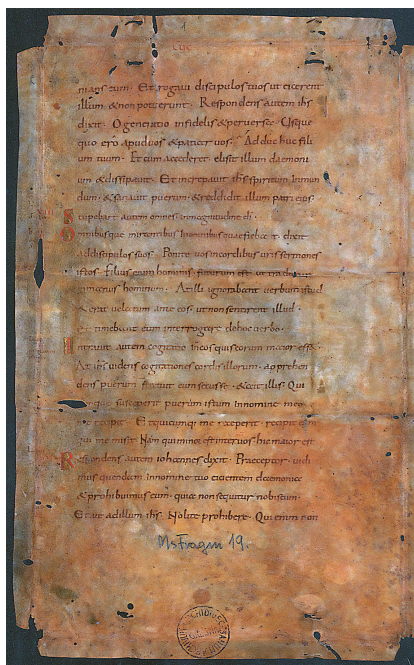 LUC
nians eum. Et rogavi discipulos tuos ut eicerent
illum & non potuerunt. Respondens autem ihs
dixit. O generatio infidelis & perversa. Usque
quo ero apud vos & patiar vos. Adduc huc fili
um tuum. Et cum accederet elisit illum daemoni
um & dissipavit. Et increpavit ihs spiritum inmun
dum. & sanavit puerum. & reddidit illum patri eius
Stupebant autem omnes in magnitudine di.
Omnibusque mirantibus in omnibus quae faciebat dixit
ad discipulos suos. Ponite vos in cordibus vris sermones
istos. Filius enim hominis futurum est ut tradatur
in manus hominum. At illi ignorabant verbum istud
& erat velatum ante eos. ut non sentirent illud.
Et timebant eum interrogare de hoc verbo.
Intravit autem cogitatio in eos quis eorum maior ess&.
At ihs videns cogitationes cordis illorum. apprehen
dens puerum statuit eum secus se. & ait illis. Qui
cumque susceperit puerum istum in nomine meo
me recipit. Et quicumque me receperit. recipit eum
qui me misit. Nam qui minor est inter vos hic maior est
Respondens autem iohannes dixit. Praeceptor. vidi
mus quendam in nomine tuo eicientem daemonia
& prohibuimus eum. quia non sequitur nobiscum.
Et ait ad illum ihs. Nolite prohibere. Qui enim non
Ms Fragm 19.